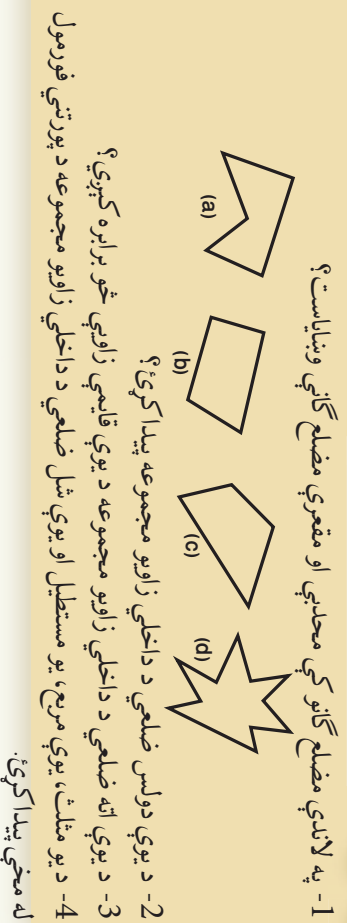 1- په لاندې مضلع گانو کې محدبې او مقعرې مضلع گانې وښایاست؟
(a)
(b)
(c)
(d)
2- د یوې دولس ضلعي د داخلي زاویو مجموعه پیدا کړئ؟
3- د یوې اته ضلعي د داخلي زاویو مجموعه د یوې قایمې زاویې څو برابره کیږي؟
4- د یو مثلث، یوې مربع، یو مستطیل او یوې شل ضلعي د داخلي زاویو مجموعه د پورتني فورمول
له مخې پیدا کړئ.